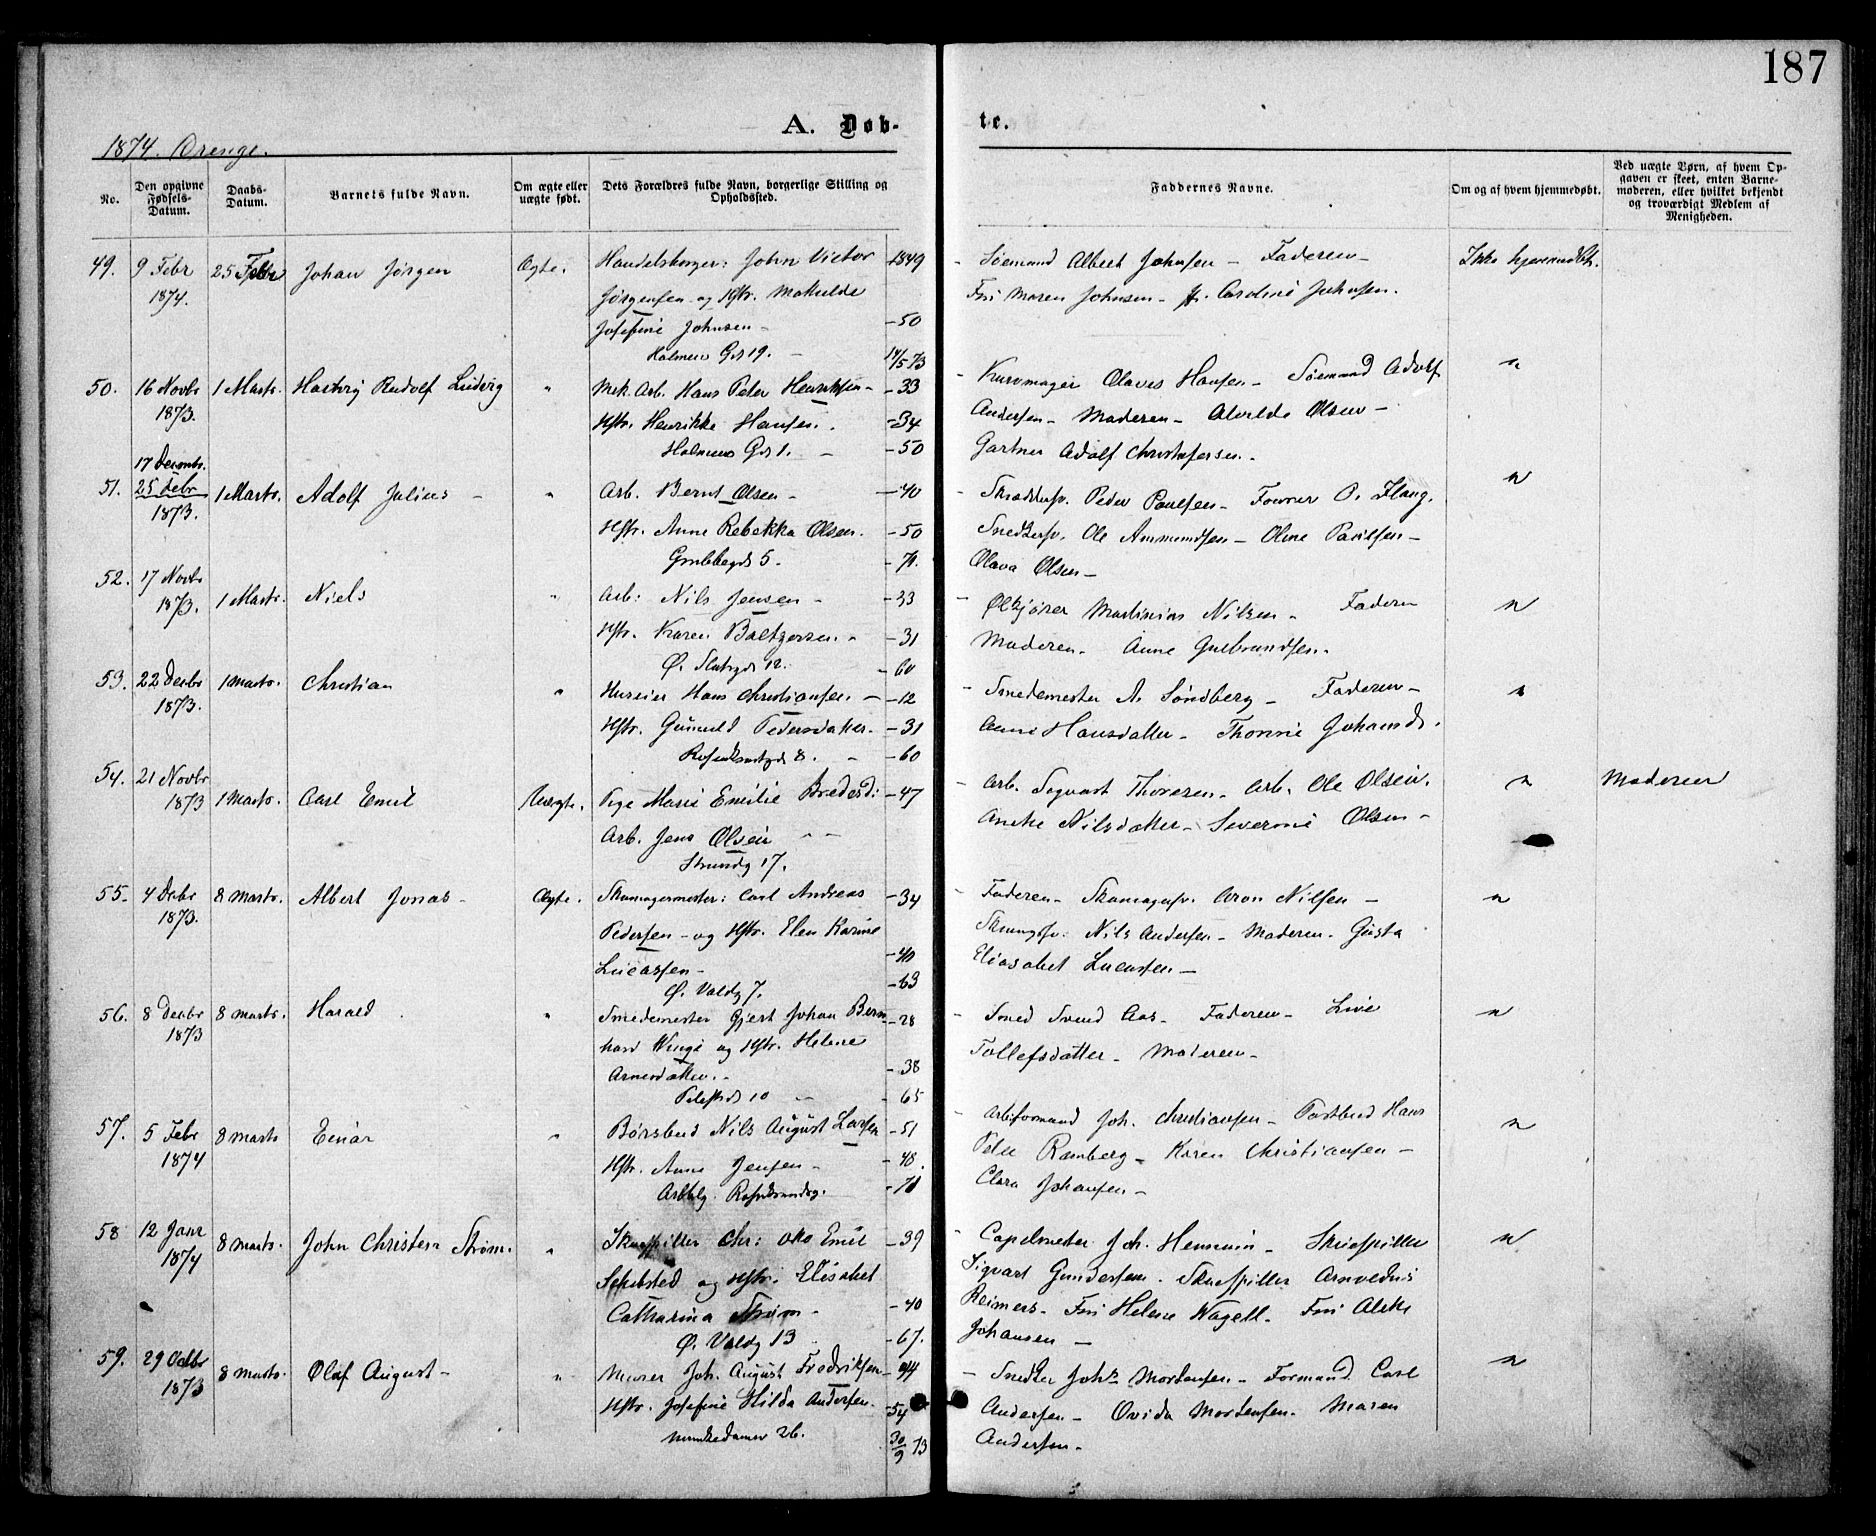 187
A. Døb-
te.
1874. Drenge.
No.
Den opgivne Fødsels-Datum.
Daabs-Datum.
Barnets fulde Navn.
Om ægte eller uægte født.
Dets Forældres fulde Navn, borgerlige Stilling og Opholdssted.
Faddernes Navne.
Om og af hvem hjemmedøbt.
Ved uægte Børn, af hvem Op-
gaven er skeet, enten Barne-
moderen, eller hvilket bekjendt
og troværdigt Medlem af
Menigheden.
49. 9 Febr 25 Febr Johan Jørgen Ægte. Handelsborger: John Victor 1849 - Søemand Albert Johnsen - Faderen - Ikke hjemmedbt.
1874. Jørgensen og Hstr. Mathilde Fru Maren Johnsen - Fr. Caroline Johnsen.
Josefine Johnsen - - 50
Holmens Gd 19. - 14/5 73
50. 16 Novbr 1 Marts. Hartvig Rudolf Ludvig " Mek. Arb. Hans Peter Henriksen - - 33 - Kurvmager Olaves Hansen - Søemand Adolf "
1873. Hstr. Henrikke Hansen. - 34 Andersen - Moderen - Alvilde Olsen -
Holmens Gd 1. - - 50 Gartner Adolf Christofersen.
17 Decmbr.
51. 25 Febr 1 Marts. Adolf Julius - " Arb. Bernt Olsen - - 40 - Skrædersv. Peder Paulsen - Fourer O. Haug. "
1873. Hstr. Anne Rebekka Olsen. - 50 Snedkersv. Ole Ammundsen - Oline Paulsen -
Grubbegd 5. - 71. Olava Olsen -
52. 17 Novbr
1873. 1 Marts. Niels " Arb: Nils Jensen - - 33 - Ølkjører Martinius Nilsen - Faderen "
Hstr. Karen Baltzersen - - 31 Moderen - Anne Gulbrandsen -
Ø. Slotsgd 12. - 60
53. 22 Decbr 1 Marts. Christian " Huseier Hans Christiansen - - 12 - Smedemester A. Sondberg - Faderen - "
1873. Hstr. Gunuld Pedersdatter. - 31 Anne Hansdatter - Thonne Johannsd.
Rosenkrantzgd 8. - - 60
54. 21 Novbr
1873 1 Marts. Carl Emil Uægte. Pige Marie Emilie Bredesd: - 47 - Arb. Sogvart Thoresen - Arb. Ole Olsen. " Moderen
Arb. Jens Olsen - - Anethe Nilsdatter - Severine Olsen -
Strandg 17.
55. 4 Decbr 8 Marts. Albert Jonas - Ægte. Skomagermester: Carl Andreas - 34 - Faderen - Skomagersv. Aron Nilsen - "
1873. Pedersen - og Hstr. Elen Karine Skomgsv: Nils Andersen - Moderen - Gusta
Lucassen - - 40 Eliasabet Lucassen -
Ø. Voldg 7. - 63
56. 8 Decbr 8 Marts. Harald " Smedemester Gjert Johan Bern - 28 - Smed Svend Aas - Faderen - Live "
1873 hard Winge og Hstr. Helene Tollefsdatter - Moderen -
Arnesdatter. - - 38
Pilestrd 10 - - 65
57. 5 Febr 8 Marts Einar " Børsbud Nils August Larsen - 51 - Arbformand Joh. Christiansen - Postbud Hans "
1874 Hstr. Anne Jensen - - 48. Peter Ramberg - Karen Christiansen -
Arbblg. Rosenkrandsg. - 71 Clara Johansen -
58 12 Janr 8 Marts. John Christen Strøm. " Skuespiller Chr: Otto Emil - 39 - Capelmester Joh. Hennum - Skuespiller "
1874 Schibsted og Hstr. Elisabet Sigvart Gundersen. Skuespiller Arnoldus
Catharina Strøm - - 40 Reimers - Fru Helene Wagell. Fru Alette
Ø. Voldg 13 - 67. Johansen -
59. 29 Octbr 8 Marts. Olaf August - " Murer Joh. August Fredriksen - 44 - Snedker Johs Mortensen - Formand Carl "
1873 Hstr. Josefine Hilda Andersen. - 54 Andersen - Ovida Mortensen. Maren
Munkedamsv 26. 30/9 73 Andersen.